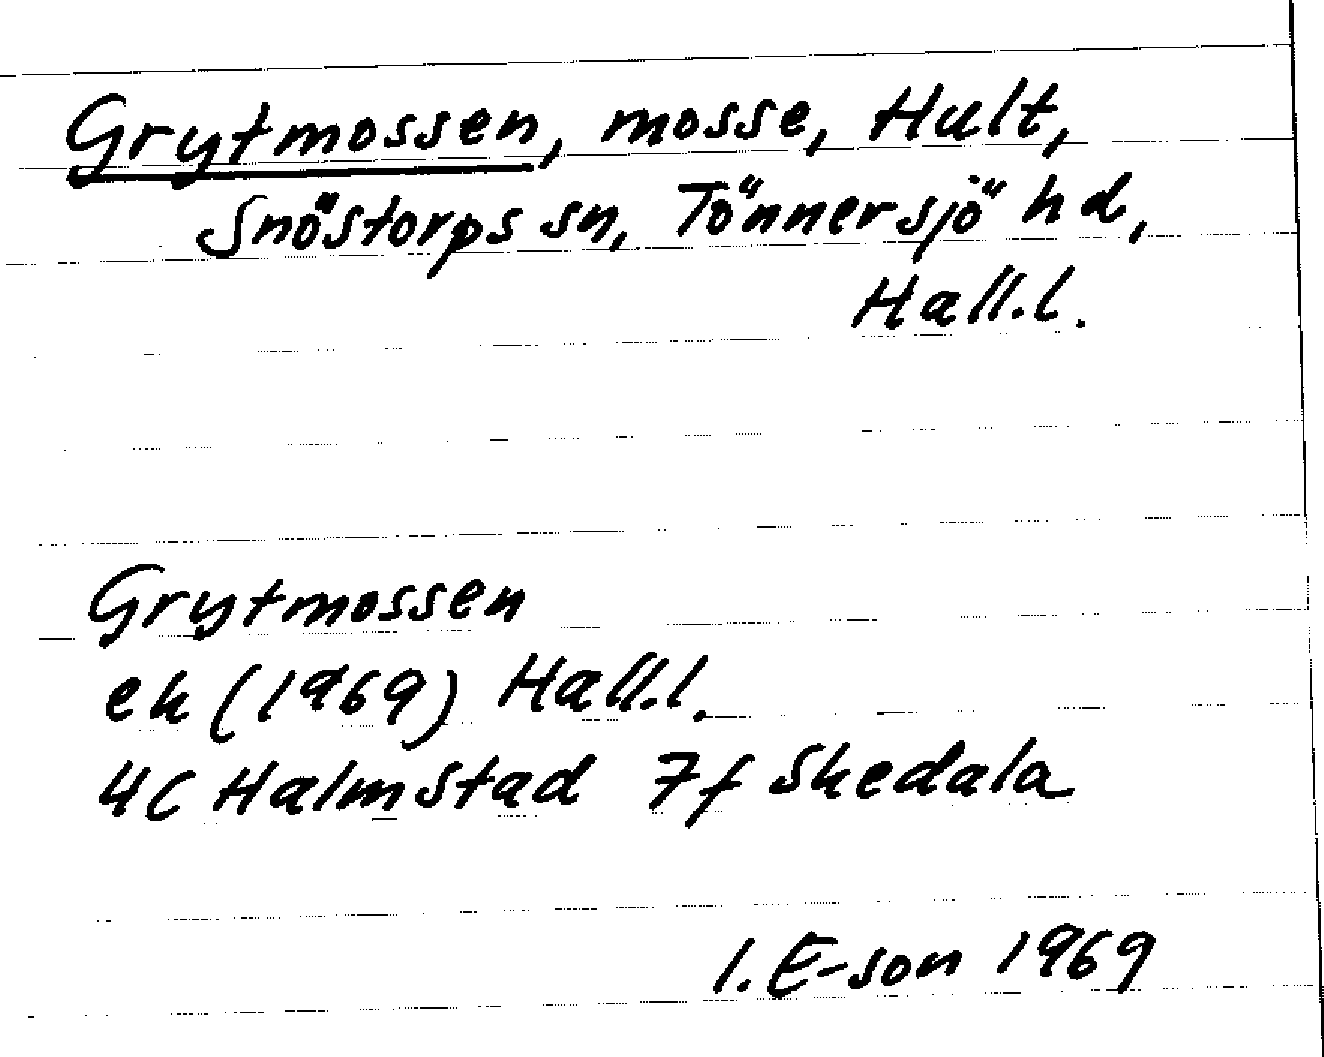 Grytmossen, mosse, Hult,
Snöstorps sn, Tönnersjö hd,
Hall.l.
Grytmossen
ek (1969) Hall.l.
4C Halmstad 7f Skedala
I. E-son 1969